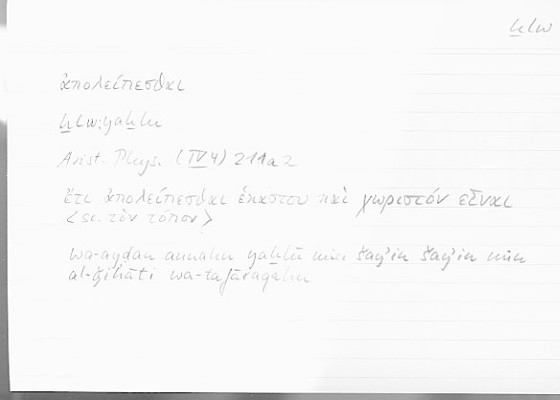 ḫlw
ἀπολείπεσθαι
ḫlw: yaḫlu
Arist. Phys. (IV 4) 211a2
ἔτι ἀπολείπεσθαι ἑκάστου καὶ χωριστὸν εἶναι
<sc. τὸν τόπον>
wa-ayḍan annahu yaḫlū min šayʾin šayʾin min
al-ǧihāti wa-tufāraqahu